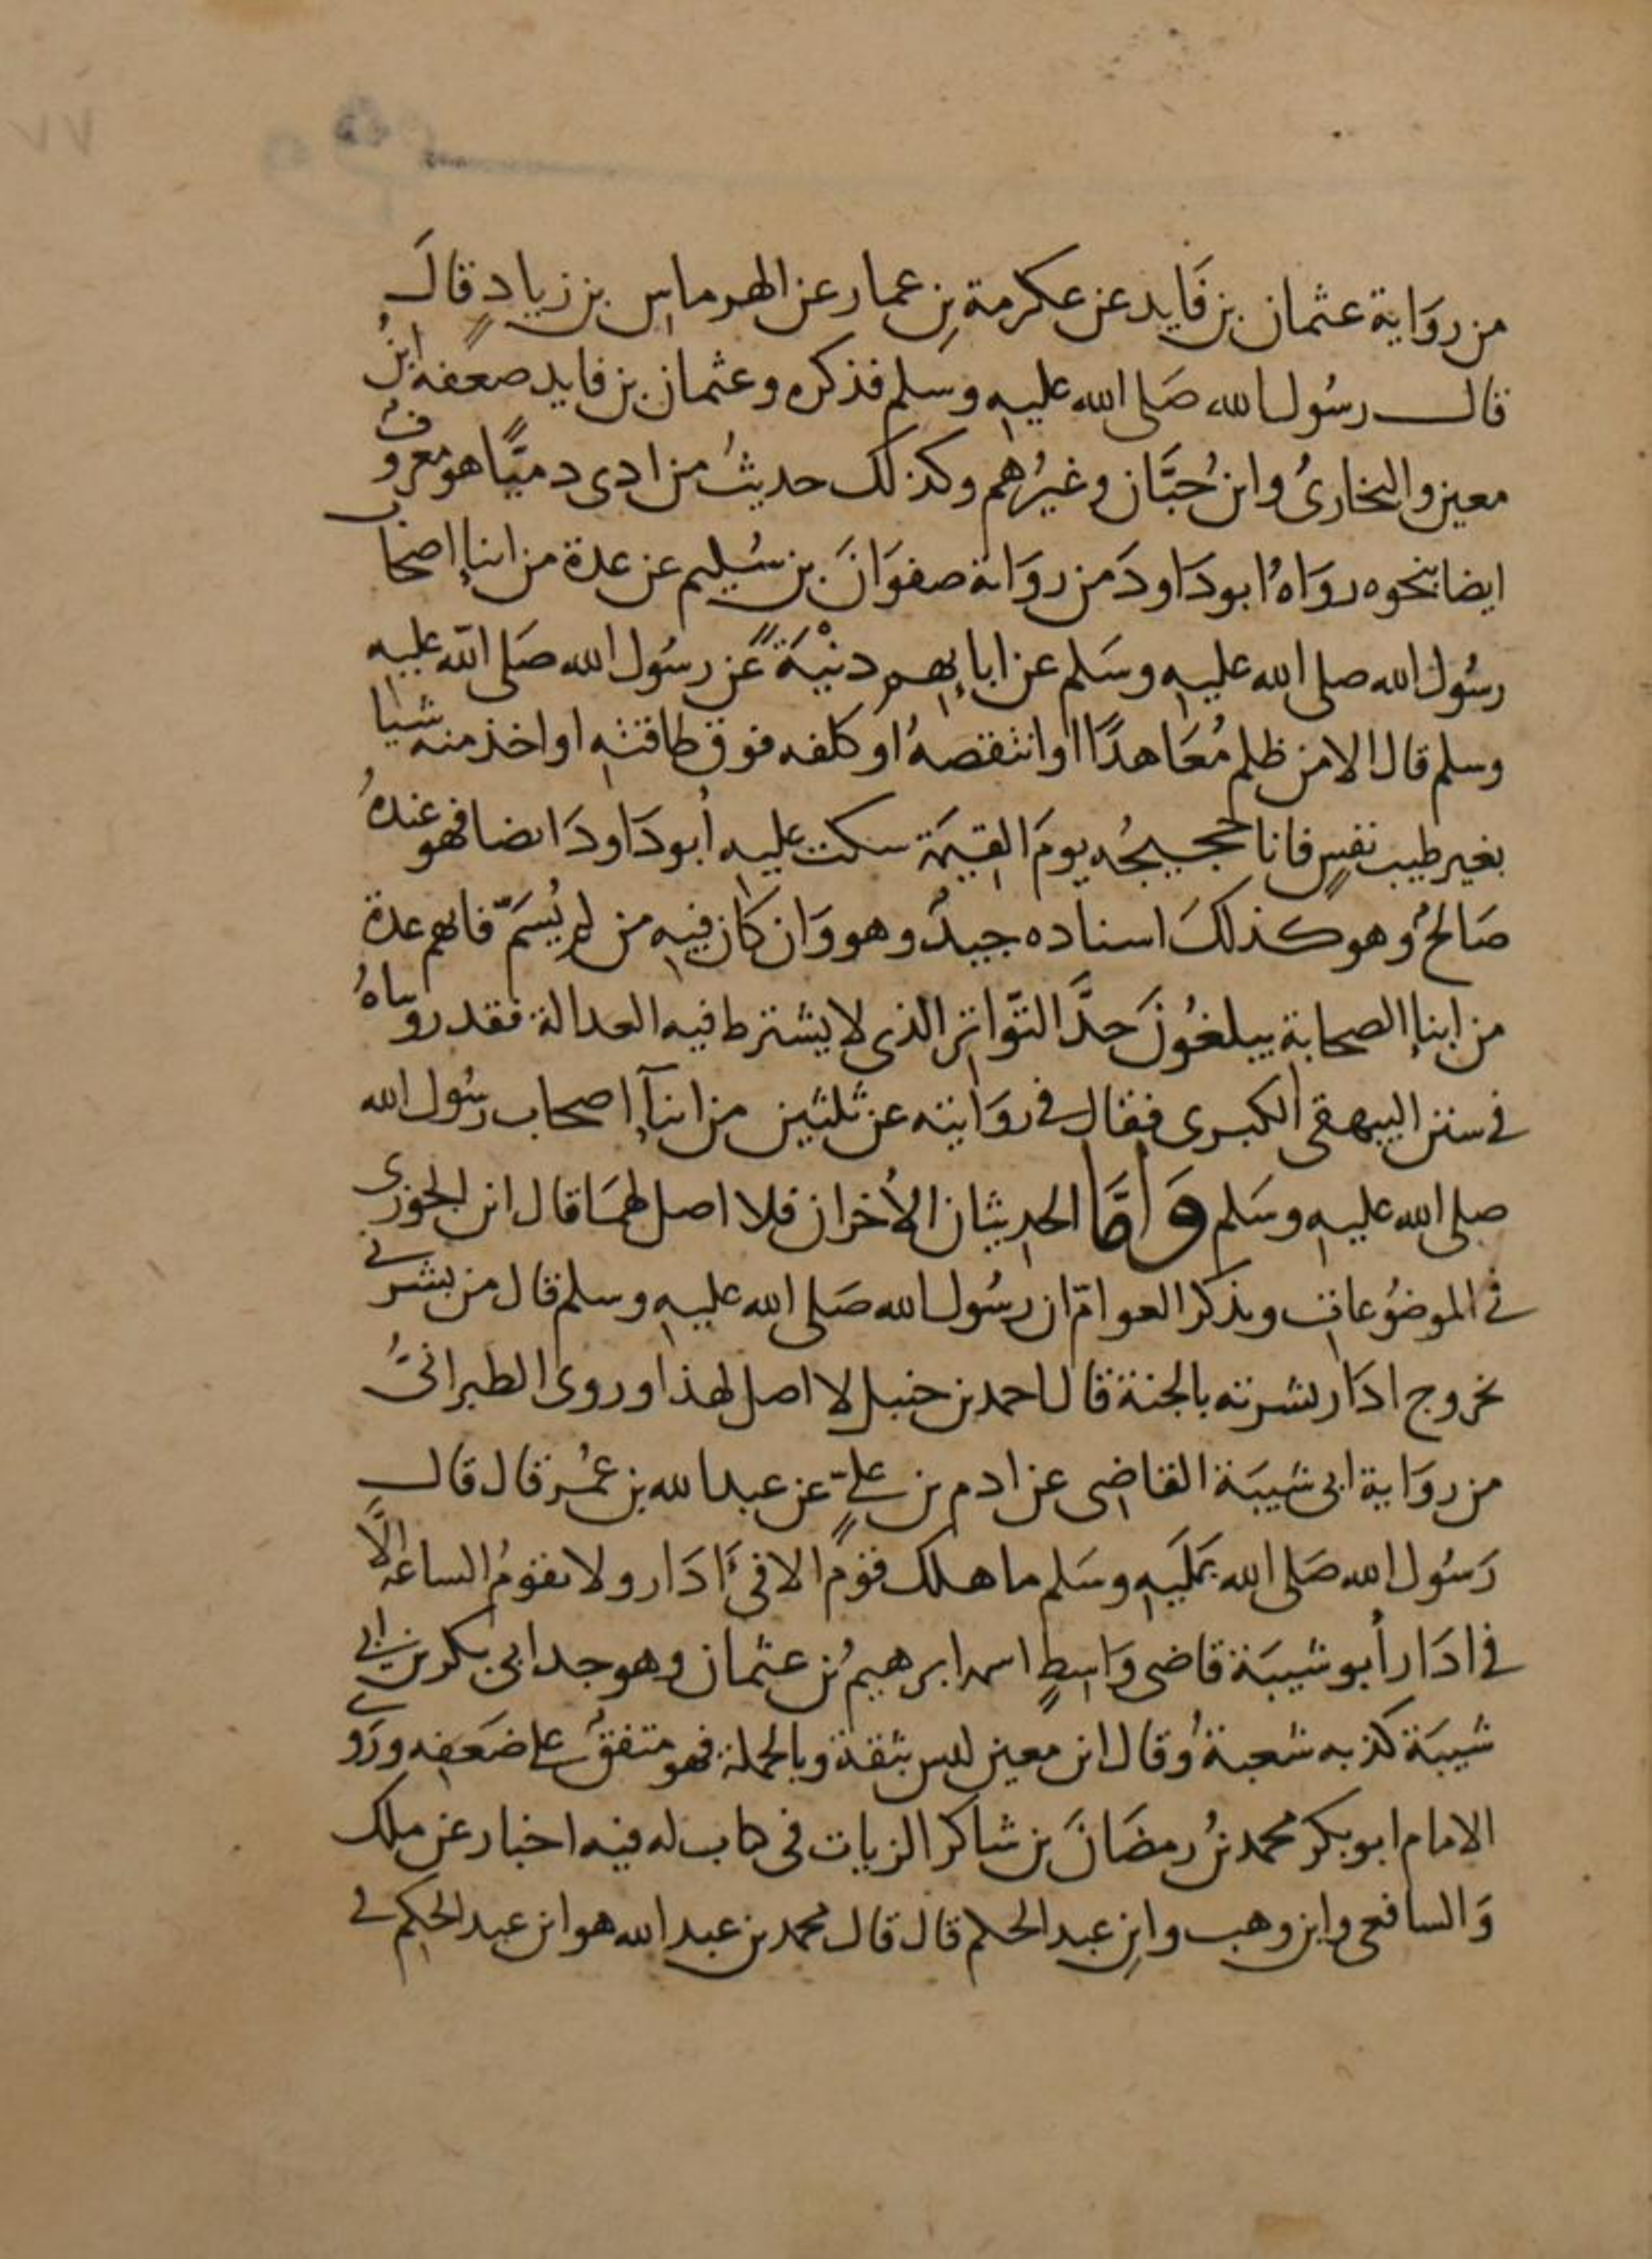 من رواية عثمان بن فايد عن عكرمة بن عمار عن الهرماس بن زياد قال
قال رسول الله صلى الله عليه وسلم فذكره وعثمان بن فايد ضعفه ابن
معين والبخاري وابن حبان وغيرهم وكذلك حديث من اذى دميا هو معروف
ايضا بنحوه رواه ابو داود من رواية صفوان بن سليم عن عدة من ابنا اصحاب
رسول الله صلى الله عليه وسلم عن ابايهم دنية عن رسول الله صلى الله عليه
وسلم قال الا من ظلم معاهدا او انتقصه او كلفه فوق طاقته او اخذ منه شيا
بغير طيب نفس فانا حجيجه يوم القيمة سكت عليه ابو داود ايضا فهو عنده
صالح وهو كذلك اسناده جيد وهو وان كان فيه من لم يسم فانهم عدة
من ابنا الصحابة يبلغون حد التواتر الذي لا يشترط فيه العدالة فقد رويناه
في سنن البيهقي الكبرى فقال في روايته عن ثلثين من ابنآ اصحاب رسول الله
صلى الله عليه وسلم واما الحديثان الاخران فلا اصل لهما قال ابن الجوزي
في الموضوعات ويذكر العوام ان رسول الله صلى الله عليه وسلم قال من بشرني
بخروج ادار بشرته بالجنة قال احمد بن حنبل لا اصل لهذا وروى الطبراني
من رواية ابي شيبة القاضي عن ادم بن علي عن عبد الله بن عمر قال قال
رسول الله صلى الله عليه وسلم ما هلك قوم الا في ادار ولا تقوم الساعة الا
في ادار ابو شيبة قاضي واسط اسمه ابرهيم بن عثمان وهو جد ابي بكر بن ابي
شيبة كذبه شعبة وقال ابن معين ليس بثقة وبالجملة فهو متفق على ضعفه وروى
الامام ابو بكر محمد بن رمضان بن شاكر الزيات في كتاب له فيه اخبار عن ملك
والشافعي وابن وهب وابن عبد الحكم قال قال محمد بن عبد الله هو ابن عبد الحكم في